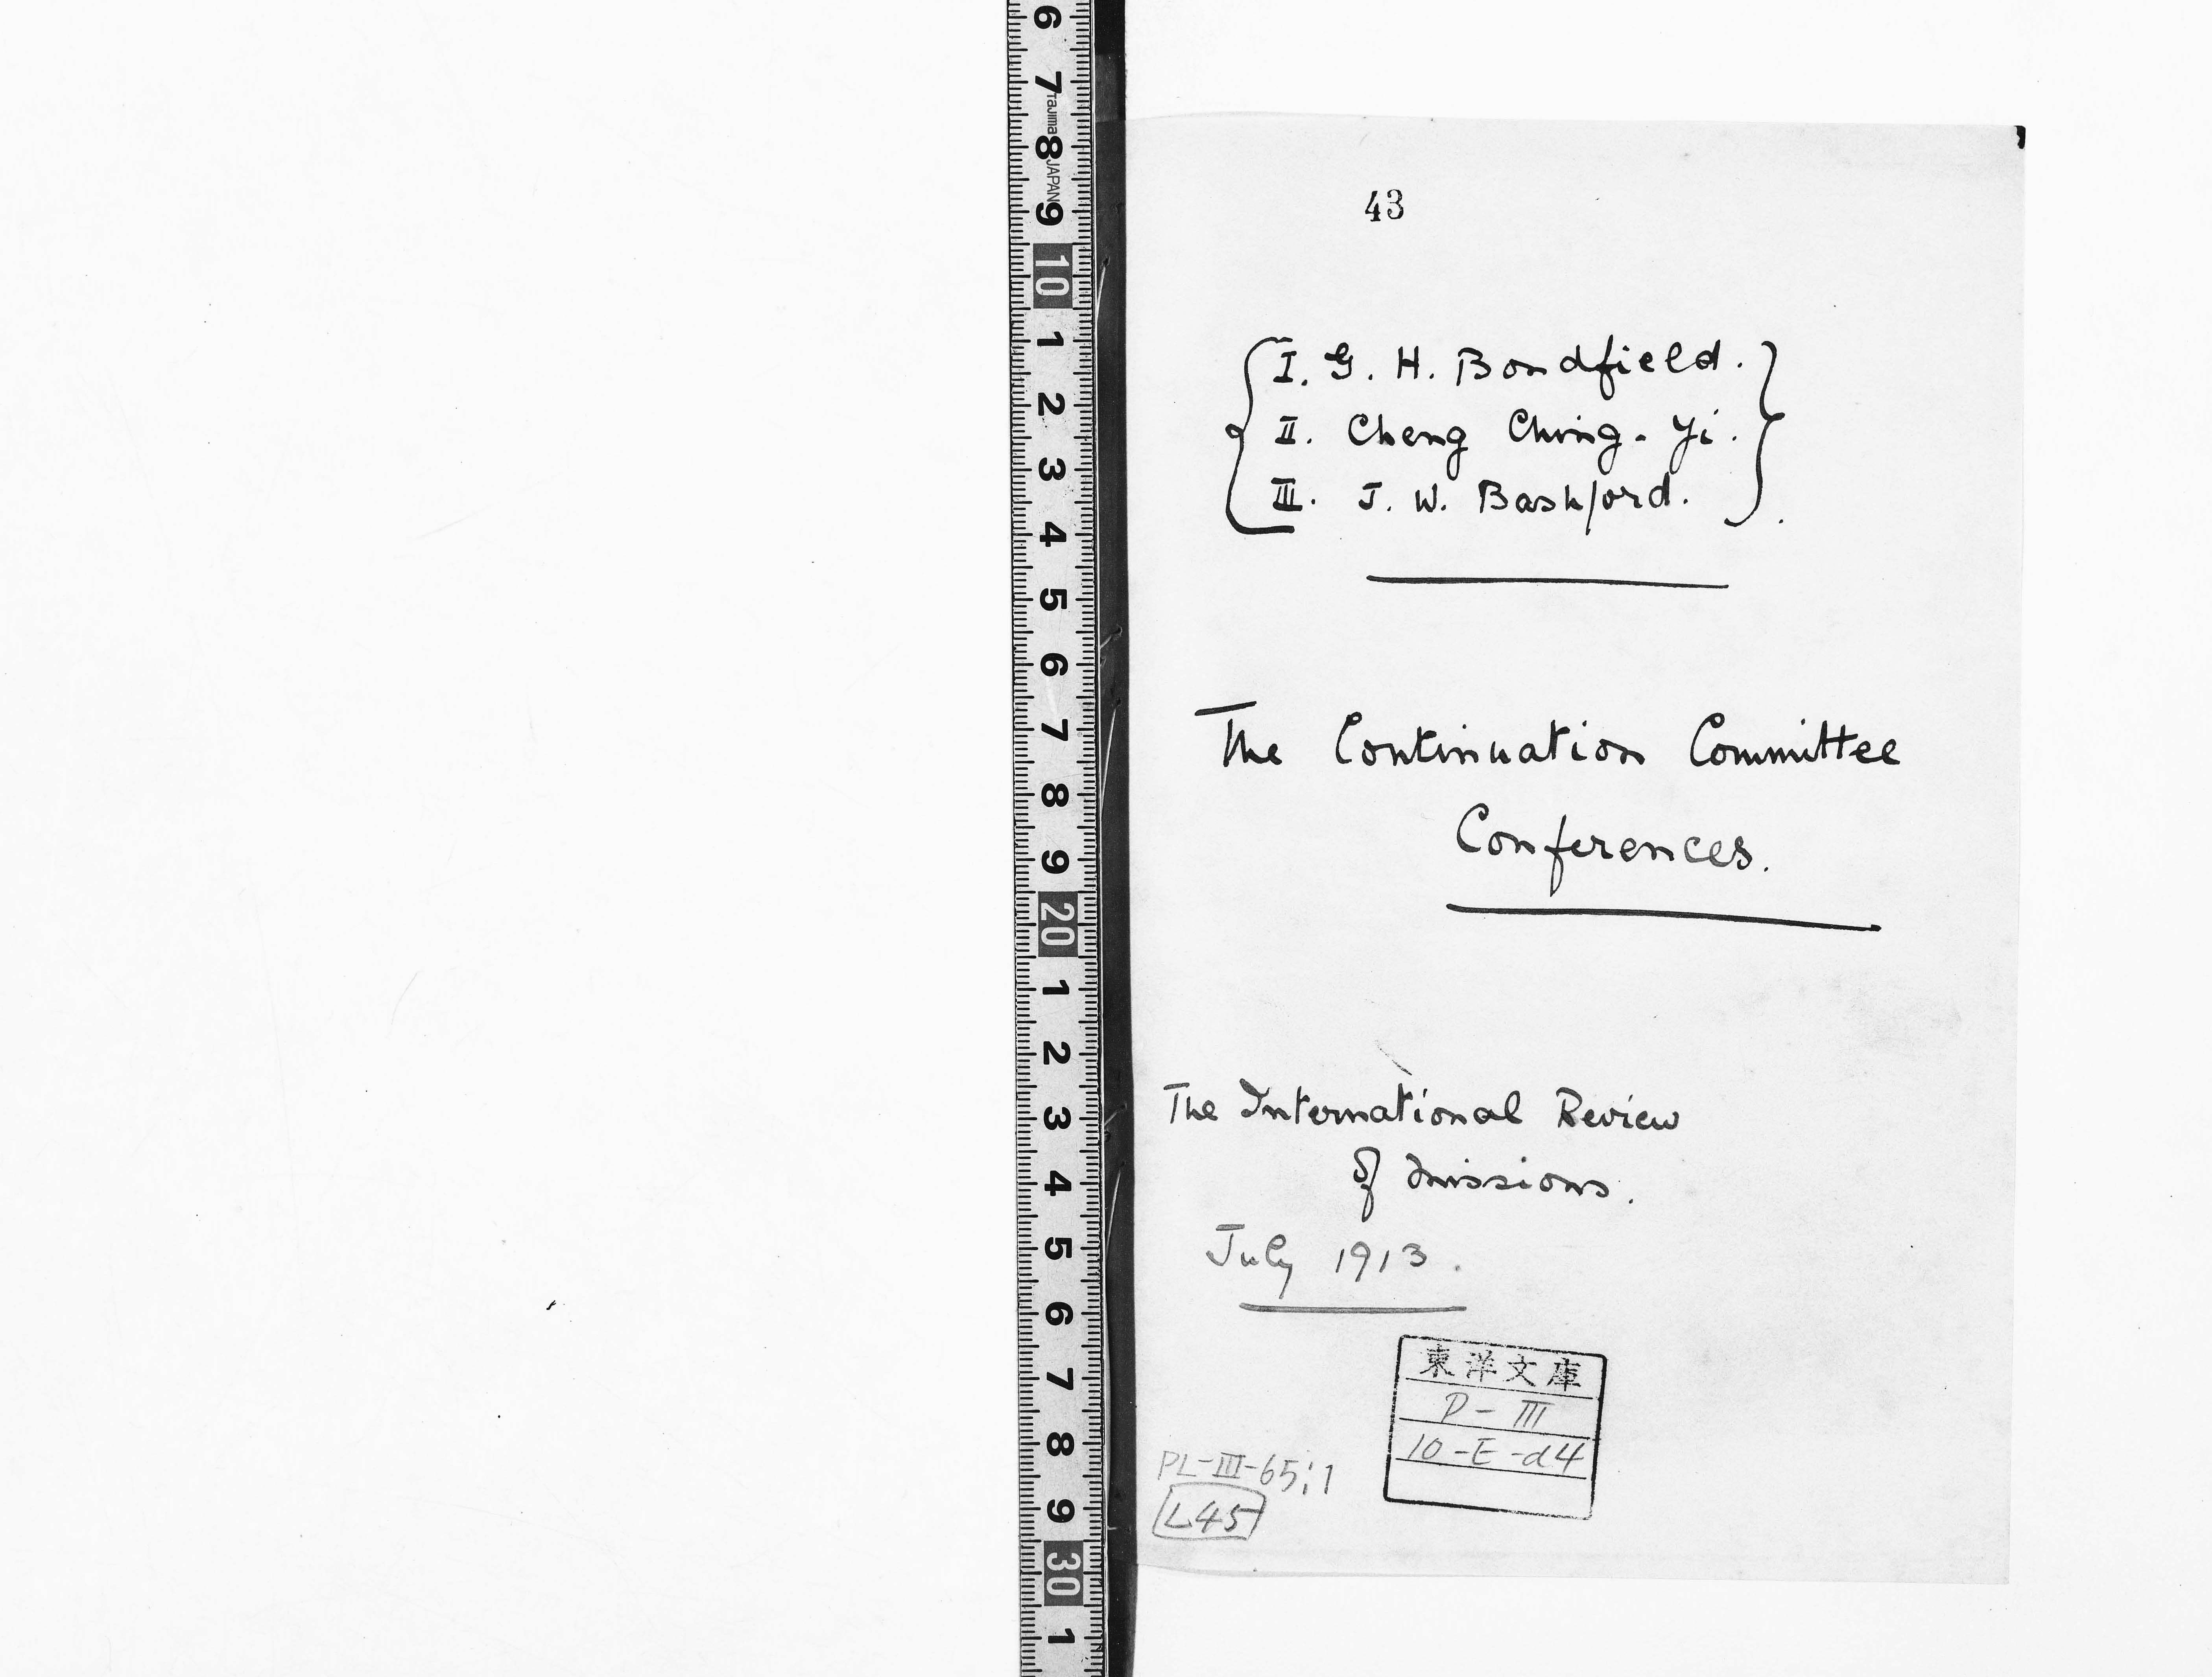 6
7
Tajima
8
JAPAN
9
10
1
2
3
4
5
6
7
8
9
20
1
2
3
4
5
6
7
8
9
30
1
43
I. G. H. Bondfield.
II. Cheng Ching-Yi.
III. J. W. Bashford.
The Continuation Committee
Conferences.
The International Review
of Missions.
July 1913.
東洋文庫
P-III
10-E-d4
PL-III-65:1
L45